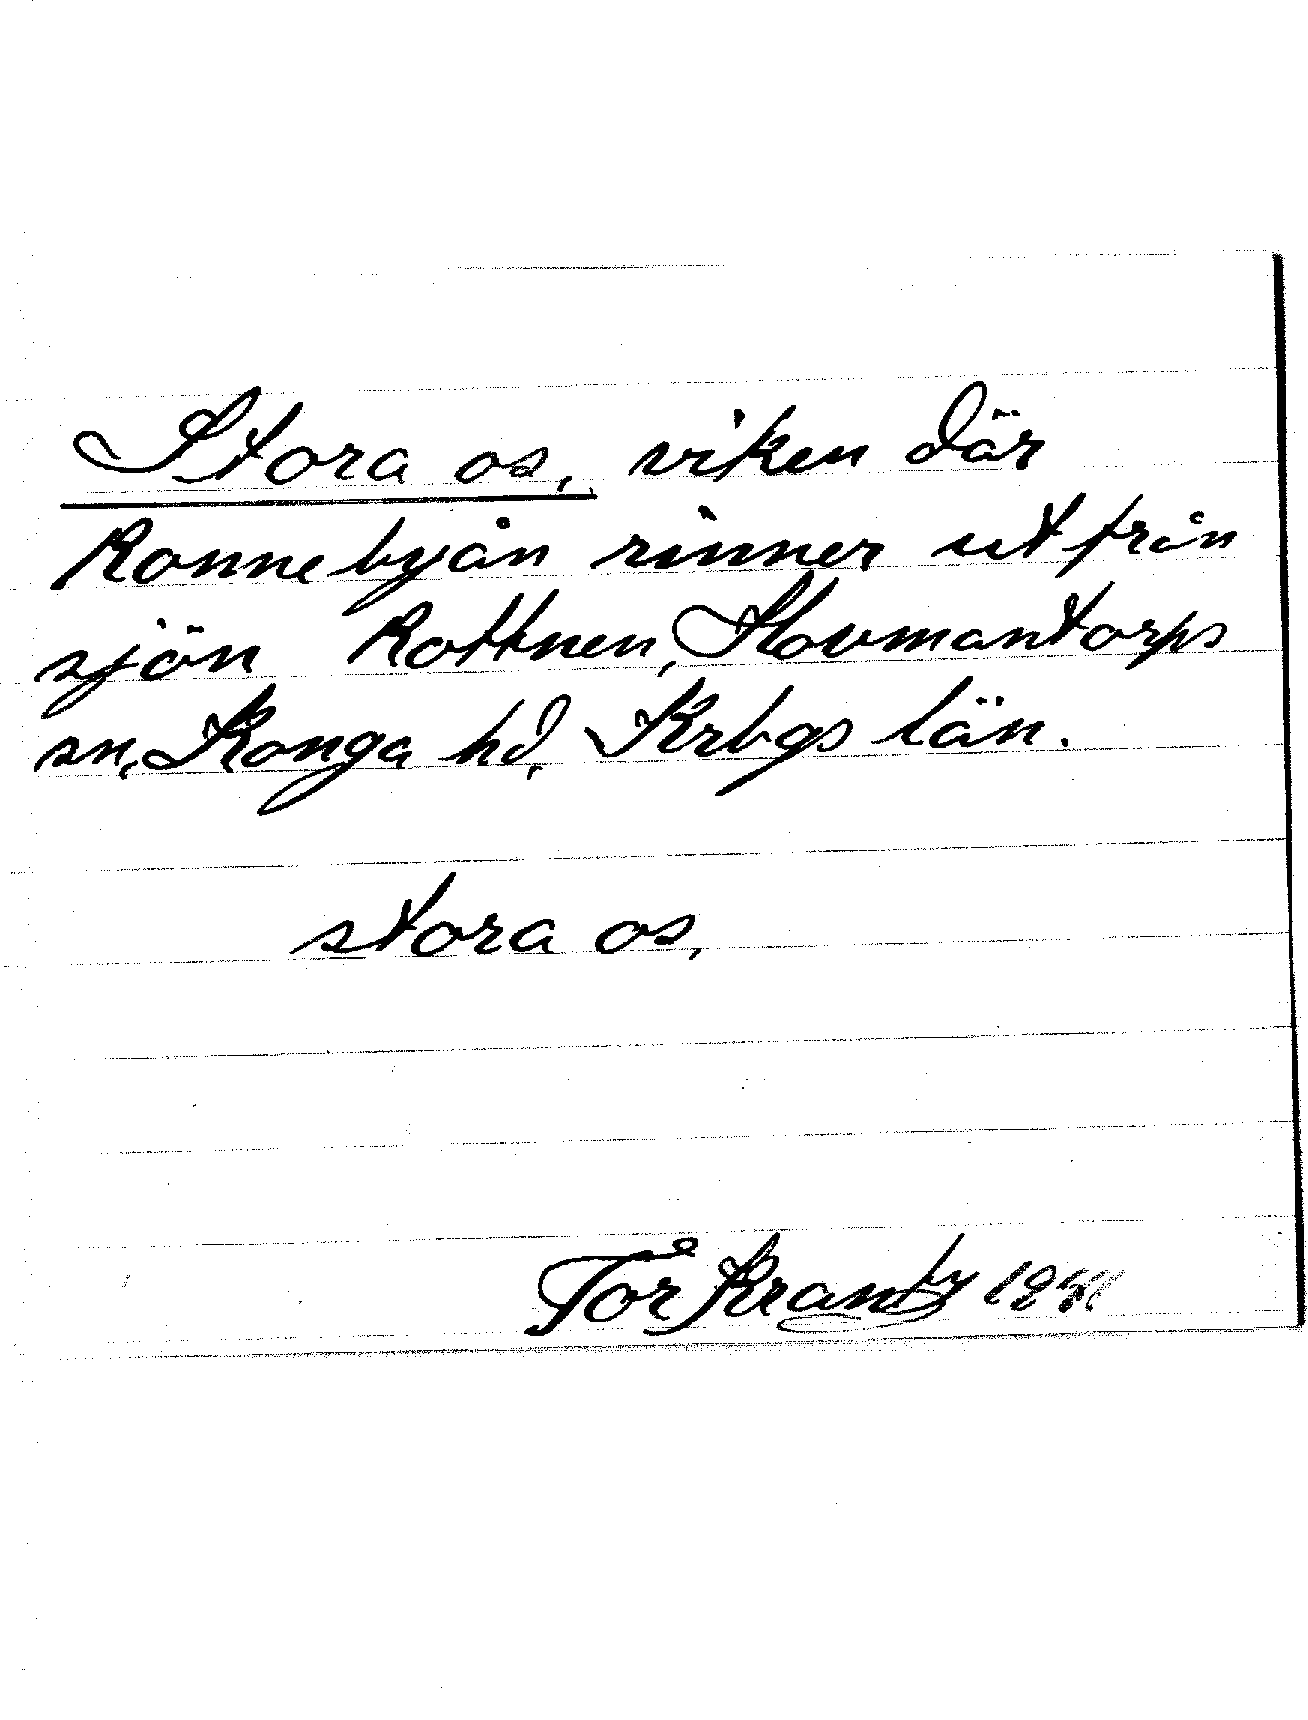 Stora os, viken där
Ronnebyån rinner ut från
sjön Rottnen, Hovmantorps
sn, Konga hd, Krbgs län.
stora os,
Tor Krantz 1941